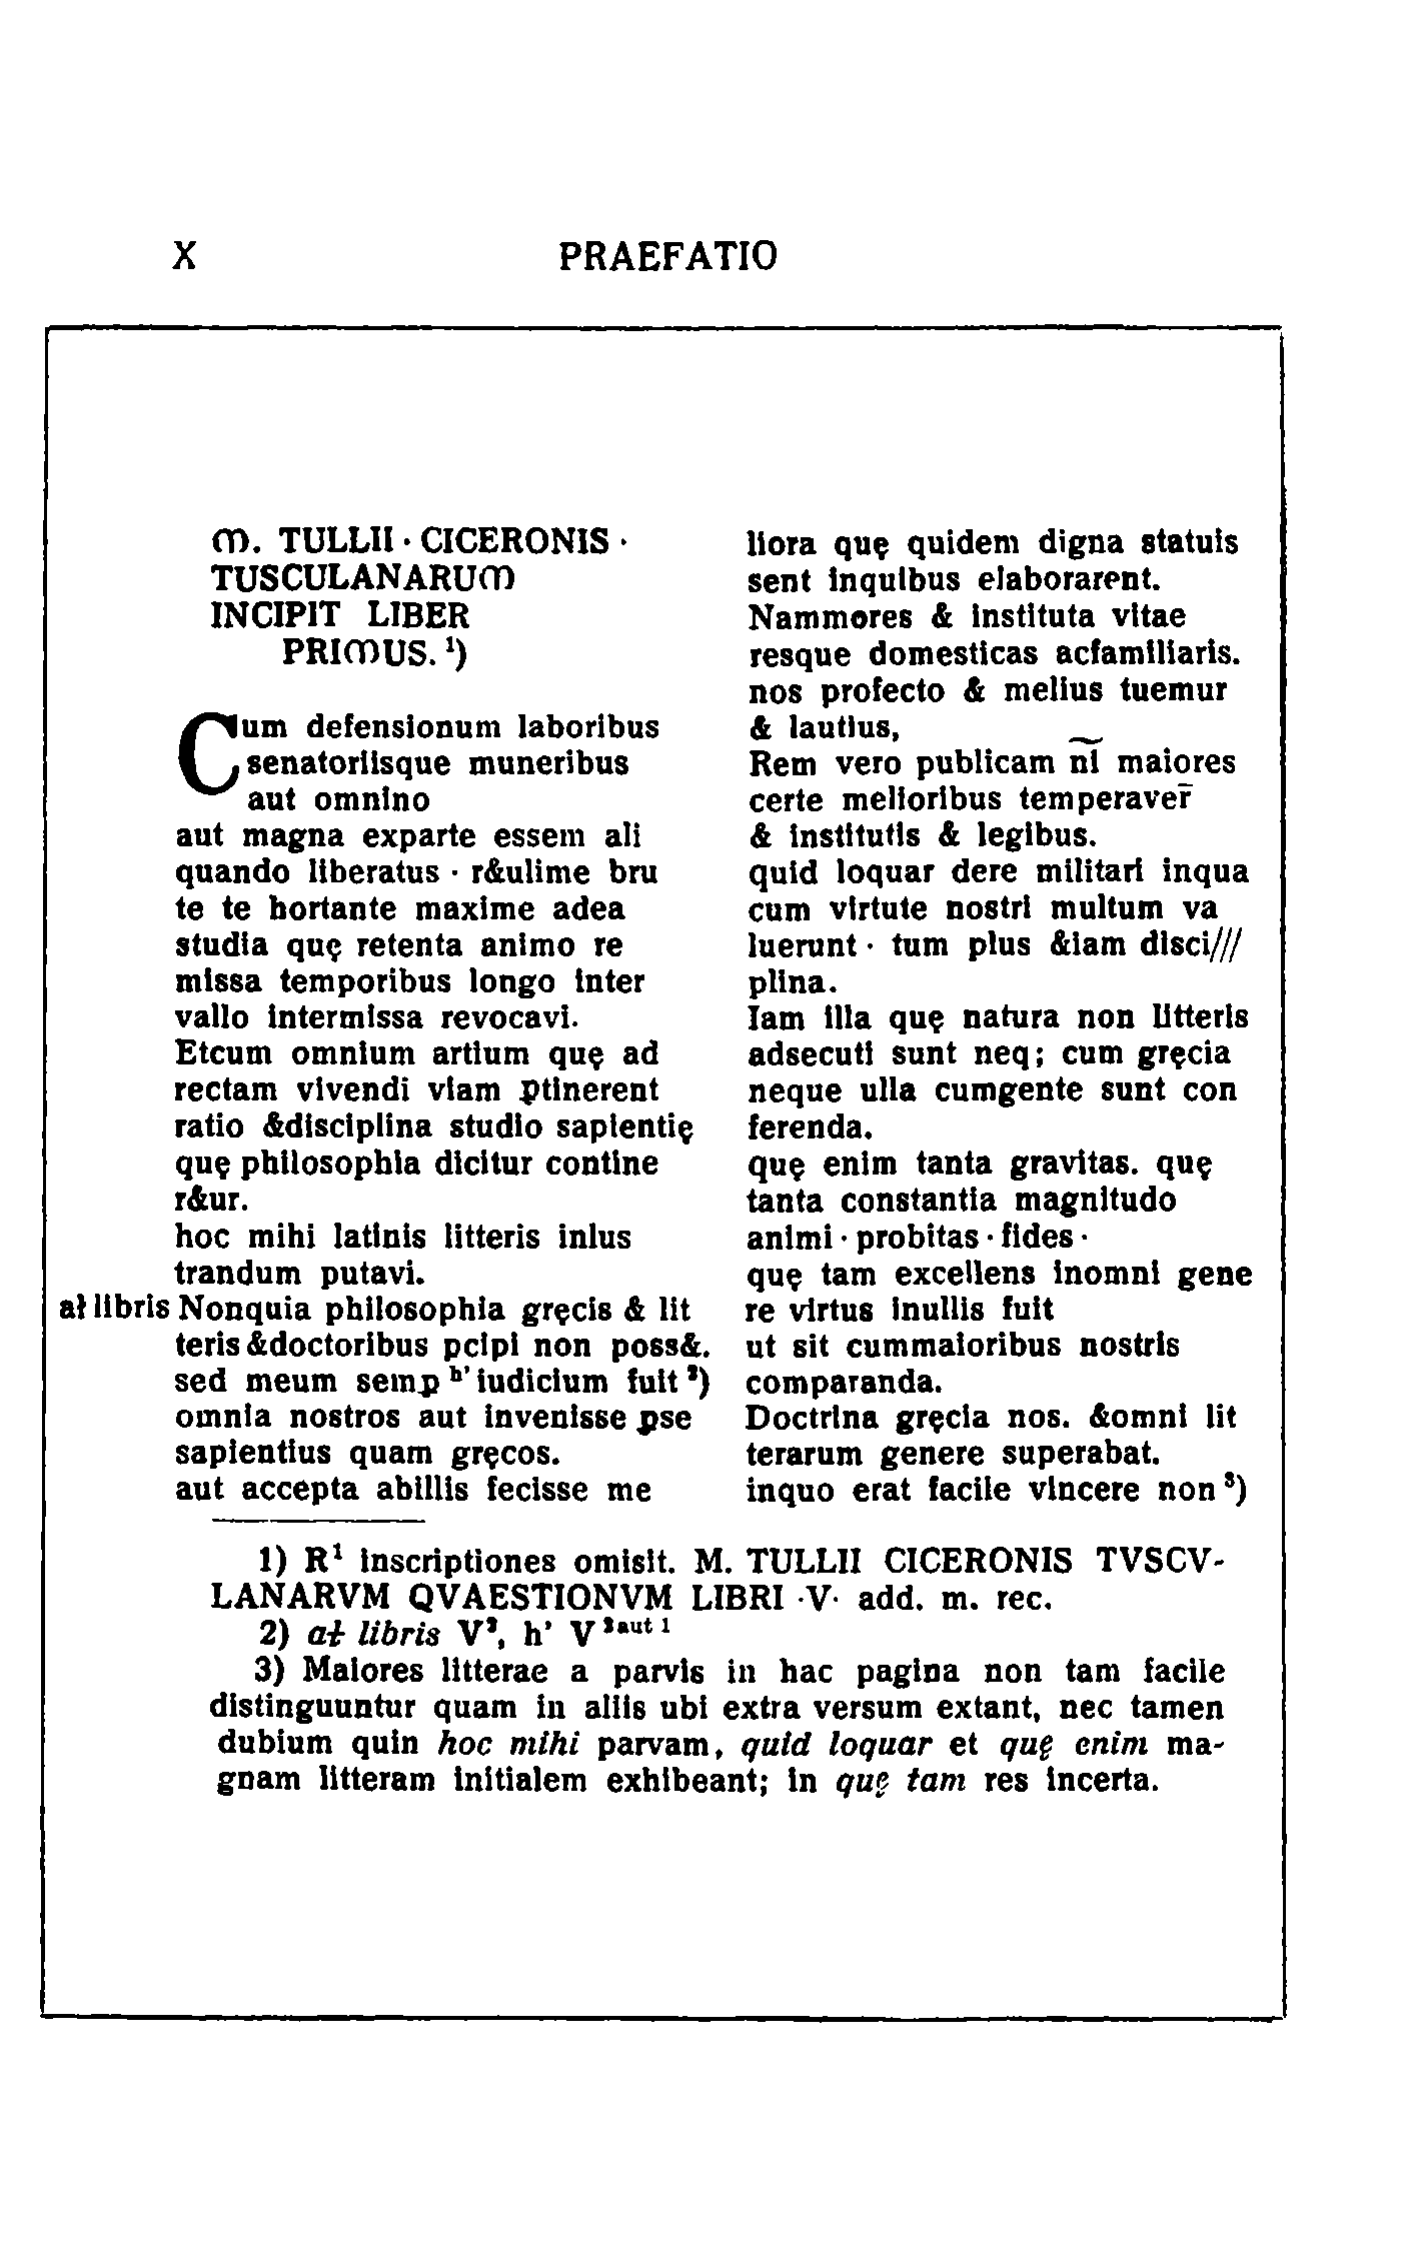 X PRAEFATIO
M. TULLII · CICERONIS ·
TUSCULANARUM
INCIPIT LIBER
PRIMUS. ¹)
Cum defensionum laboribus
senatoriisque muneribus
aut omnino
aut magna exparte essem ali
quando liberatus · r&ulime bru
te te hortante maxime adea
studia quę retenta animo re
missa temporibus longo inter
vallo intermissa revocavi.
Etcum omnium artium quę ad
rectam vivendi viam ꝑtinerent
ratio &disciplina studio sapientię
quę philosophia dicitur contine
r&ur.
hoc mihi latinis litteris inlus
trandum putavi.
aƚ libris Nonquia philosophia gręcis & lit
teris &doctoribus pcipi non poss&.
sed meum semꝑ h’ iudicium fuit ²)
omnia nostros aut invenisse ꝑse
sapientius quam gręcos.
aut accepta abillis fecisse me
liora quę quidem digna statuis
sent inquibus elaborarent.
Nammores & instituta vitae
resque domesticas acfamiliaris.
nos profecto & melius tuemur
& lautius,
Rem vero publicam nı̃ maiores
certe melioribus temperaver̄
& institutis & legibus.
quid loquar dere militari inqua
cum virtute nostri multum va
luerunt · tum plus &iam disci///
plina.
Iam illa quę natura non litteris
adsecuti sunt neq; cum gręcia
neque ulla cumgente sunt con
ferenda.
quę enim tanta gravitas. quę
tanta constantia magnitudo
animi · probitas · fides ·
quę tam excellens inomni gene
re virtus inullis fuit
ut sit cummaioribus nostris
comparanda.
Doctrina gręcia nos. &omni lit
terarum genere superabat.
inquo erat facile vincere non ³)
1) R¹ inscriptiones omisit. M. TULLII CICERONIS TVSCV-
LANARVM QVAESTIONVM LIBRI ·V· add. m. rec.
2) aƚ libris V², h’ V² aut ¹
3) Maiores litterae a parvis in hac pagina non tam facile
distinguuntur quam in aliis ubi extra versum extant, nec tamen
dubium quin hoc mihi parvam, quid loquar et quę enim ma-
gnam litteram initialem exhibeant; in quę tam res incerta.